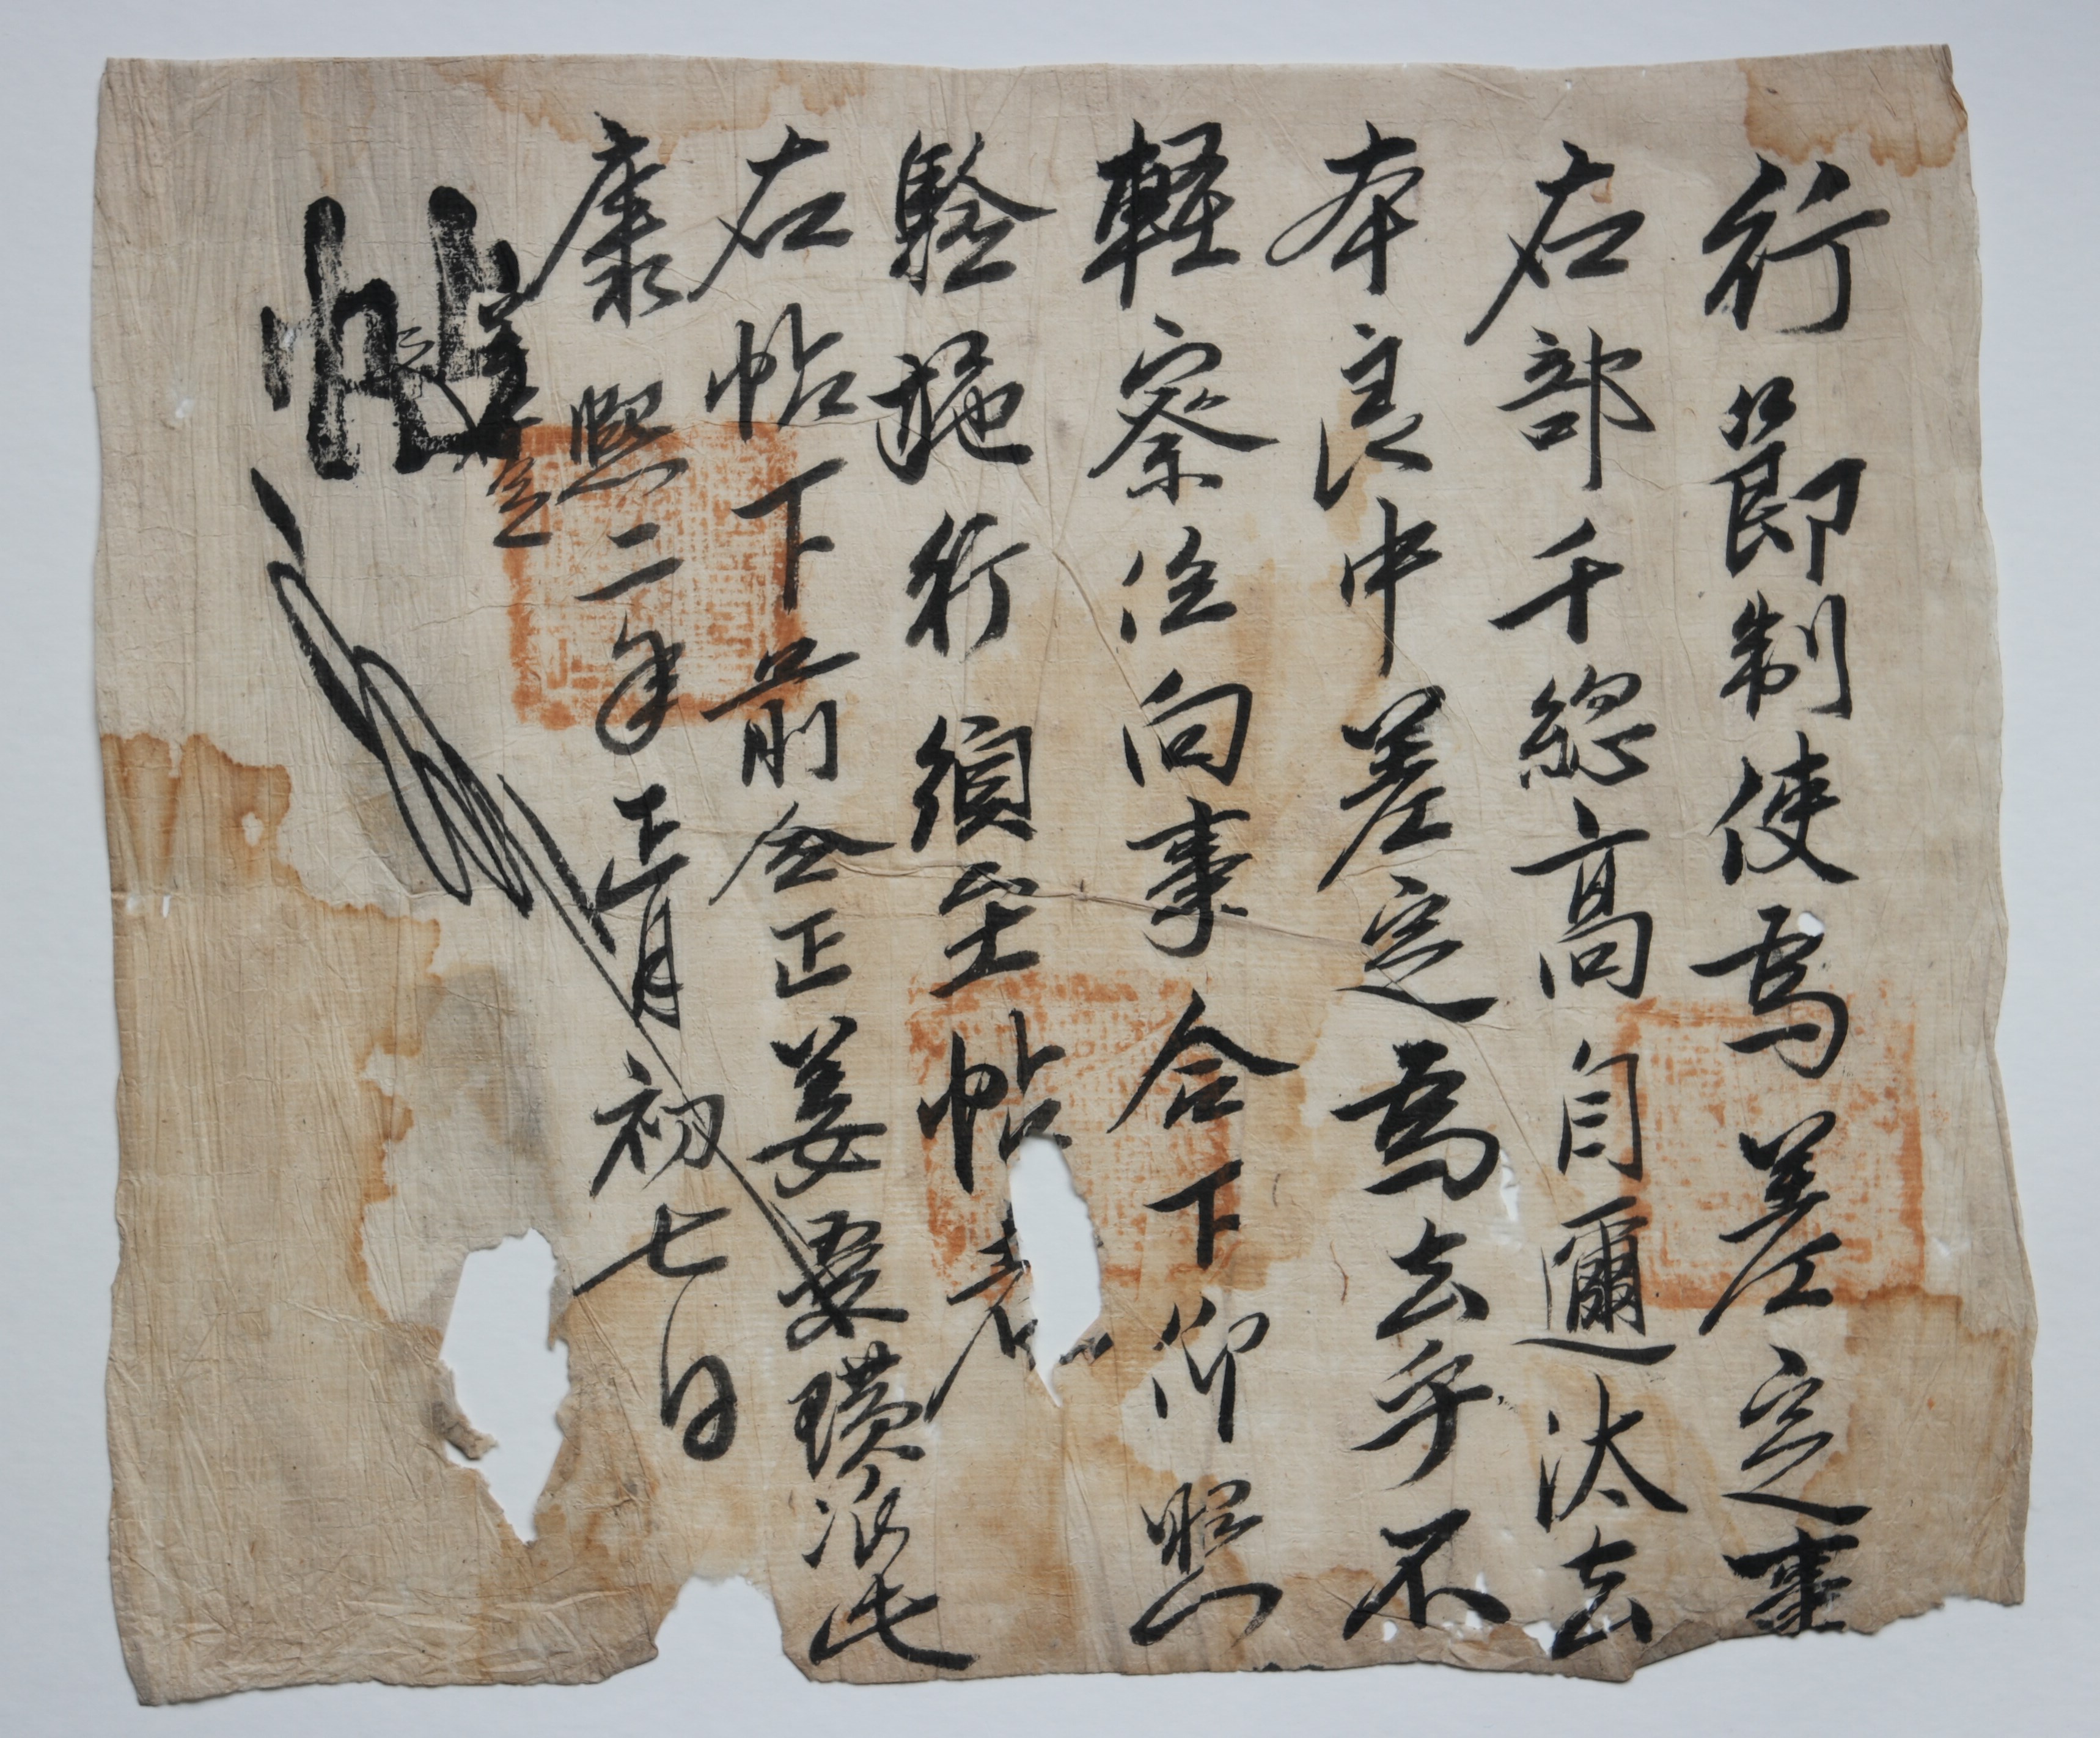 行節制使爲差定事
右部千總高自邇汰去
本良中差定爲去乎不
輕察任向事合下仰照
驗施行須至帖者
右帖下前僉正姜瓚准此
康熙二年正月初七日
差定
帖